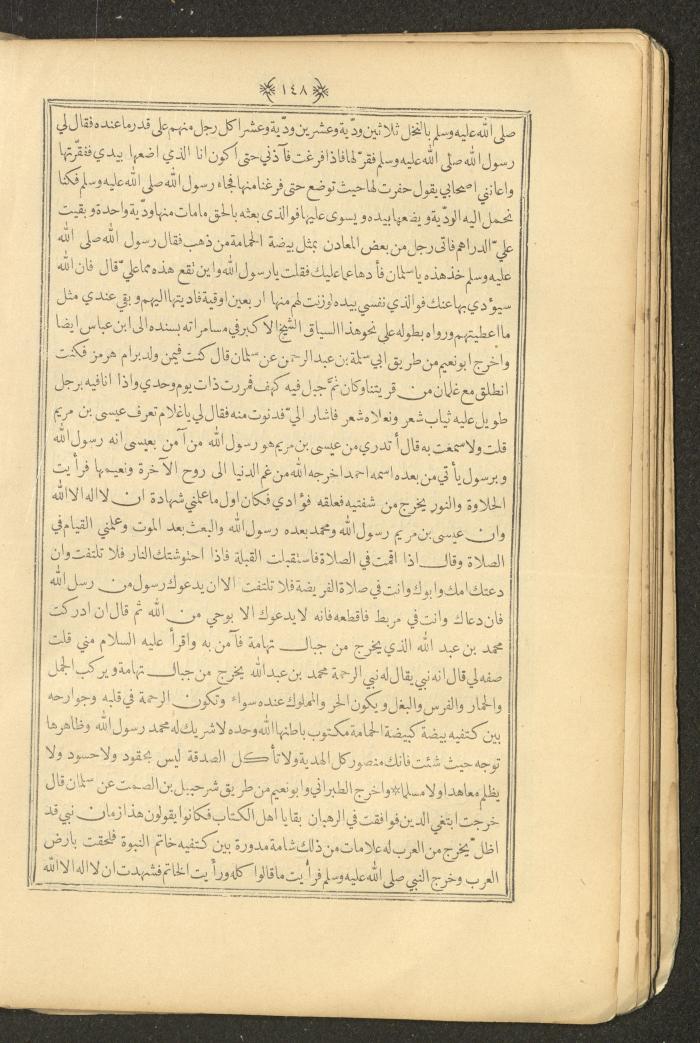 ١٤٨
صلى الله عليه وسلم بالنخل ثلاثين ودّية وعشرين ودّية وعشرا كل رجل منهم على قدر ما عنده فقال لي
رسول الله صلى الله عليه وسلم فقرّ لها فاذا فرغت فآذني حتى اكون انا الذي اضعها بيدي ففقرّتها
واعانني اصحابي يقول حفرت لها حيث توضع حتى فرغنا منها فجاء رسول الله صلى الله عليه وسلم فكنا
نحمل اليه الودّية ويضعها بيده ويسوى عليها فوالذى بعثه بالحق مامات منها ودّية واحدة وبقيت
عليّ الدراهم فاتى رجل من بعض المعادن بمثل بيضة الحمامة من ذهب فقال رسول الله صلى الله
عليه وسلم خذ هذه يا سلمان فأدها عما عليك فقلت يا رسول الله واين تقع هذه مما عليّ قال فان الله
سيؤدي بها عنك فوالذي نفسي بيده لوزنت لهم منها اربعين اوقية فاديتها اليهم وبقي عندي مثل
ما اعطيتهم ورواه بطوله على نحو هذا السياق الشيخ الاكبر في مسامراته بسنده الى ابن عباس ايضا
واخرج ابو نعيم من طريق ابي سلمة بن عبد الرحمن عن سلمان قال كنت فيمن ولد برام هرمز فكنت
انطلق مع غلمان من قريتنا وكان ثمّ جبل فيه كهف فمررت ذات يوم وحدي واذا انا فيه برجل
طويل عليه ثياب شعر ونعلاه شعر فاشار اليّ فدنوت منه فقال لي يا غلام تعرف عيسى بن مريم
قلت ولا سمعت به قال أتدري من عيسى بن مريم هو رسول الله من آمن بعيسى انه رسول الله
وبرسول يأتي من بعده اسمه احمد اخرجه الله من غم الدنيا الى روح الآخرة ونعيمها فرأيت
الحلاوة والنور يخرج من شفتيه فعلقه فؤادي فكان اول ما علمني شهادة ان لا اله الا الله
وان عيسى بن مريم رسول الله ومحمد بعده رسول الله والبعث بعد الموت وعلمني القيام في
الصلاة وقال اذا اقمت في الصلاة فاستقبلت القبلة فاذا احتوشتك النار فلا تلتفت وان
دعتك امك وابوك وانت في صلاة الفريضة فلا تلتفت الا ان يدعوك رسول من رسل الله
فان دعاك وانت في مربط فاقطعه فانه لا يدعوك الا بوحي من الله ثم قال ان ادركت
محمد بن عبد الله الذي يخرج من جبال تهامة فآمن به واقرأ عليه السلام مني قلت
صفه لي قال انه نبي يقال له نبي الرحمة محمد بن عبد الله يخرج من جبال تهامة ويركب الجمل
والحمار والفرس والبغل ويكون الحر والمملوك عنده سواء وتكون الرحمة في قلبه وجوارحه
بين كتفيه بيضة كبيضة الحمامة مكتوب باطنها الله وحده لا شريك له محمد رسول الله وظاهرها
توجه حيث شئت فانك منصور كل الهدية ولا تأكل الصدقة ليس بحقود ولا حسود ولا
يظلم معاهدا ولا مسلما * واخرج الطبراني وابو نعيم من طريق شرحبيل بن الصمت عن سلمان قال
خرجت ابتغي الدين فوافقت في الرهبان بقايا اهل الكتاب فكانوا يقولون هذا زمان نبي قد
اظلّ يخرج من العرب له علامات من ذلك شامة مدورة بين كتفيه خاتم النبوة فلحقت بارض
العرب وخرج النبي صلى الله عليه وسلم فرأيت ما قالوا كله ورأيت الخاتم فشهدت ان لا اله الا الله